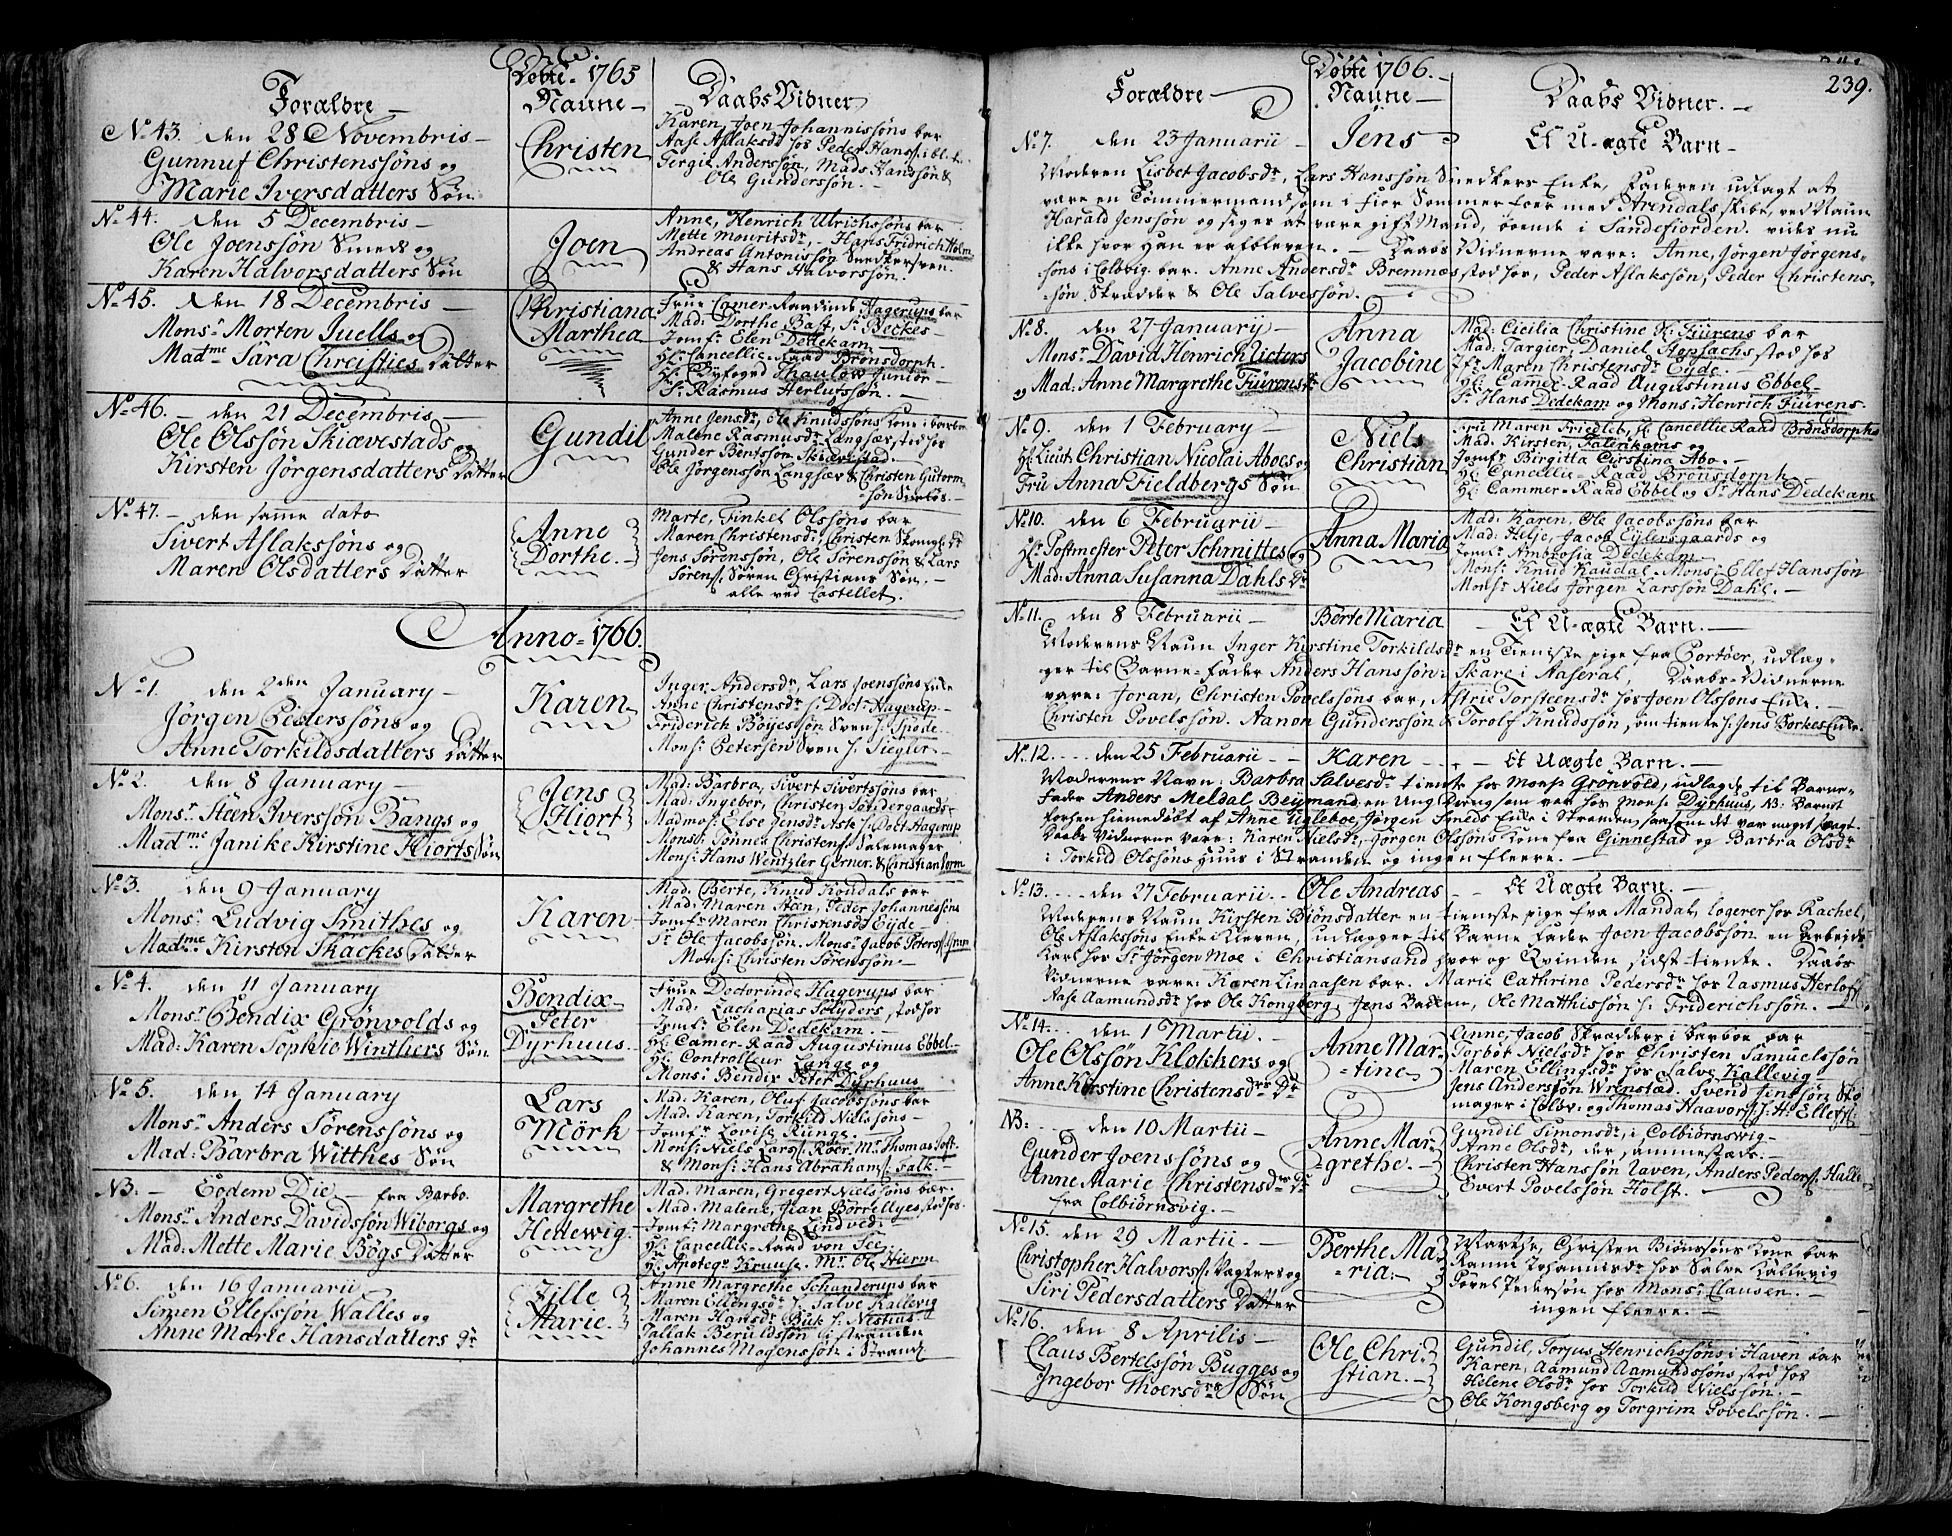 Døbte 1765
Forældre
Naune
Daabs Vidner
No. 43. den 28 Novembris
Gunnuf Christenssøns og
Marie Iversdatters Søn
Christen
Karen, Joen Johannissøns bar
Aase Aslaksdr hos Peder Hanss.
Tergie Anderssøn, Mads Hanssøn &
Ole Gunderssøn.
No. 44. den 5 Decembris
Ole Joenssøn Smeds og
Karen Halvorsdatters Søn
Joen
Anne, Henrich Ulrichssøns bar
Mette Mouritsdr, Hans Fridrich Holm
Andreas Antonissøn Snedkersven.
& Hans Halvorssøn.
No. 45. den 18 Decembris
Monsr Morten Juells og
Madme Sara Chreisties Datter
Christiana
Marthea
Frue Camer-Raadinde Hagerups bar
Mad: Dorthe Bast, Sr Beckes
Jomfr Elen Dedekam
Hr Cancellie-Raad Brønsdorph
Hr Byfoged Thaulow Junior
Sr Rasmus Herlufssøn.
No. 46. den 21 Decembris
Ole Olssøn Skiævestads og
Kirsten Jørgensdatters Datter
Gundil
Anne Jensdr, Ole Knudssøns Kone i barboe
Malene Rasmusdr Langsær, stod hos
Gunder Bentssøn Skiævestad.
Ole Jørgenssøn Langsær & Christen Gutorm-
søn
No. 47. den samme dato
Sivert Aslakssøns og
Maren Olsdatters Datter
Anne
Dorthe.
Marte, Finkel Olssøns bar
Maren Christensdr, Christen
Jens Sørenssøn, Ole Sørenssøn & Lars
Sørens. Søren Christians Søn.
alle ved Castellet.
Anno 1766.
No. 1. den 2den January
Jørgen Pederssøns og
Anne Torkildsdatters Datter
Karen
Inger Andersdr, Lars Joenssøns Enke
Anne Christensdr h: Doct: Hagerup
Friderich Boyessøn Sven h: Spøde.
Mons: Petersen Sven h: Ziegler
No. 2. den 8 January
Monsr Steen Iverssøn Bangs og
Madme Janike Kirstine Hiorts Søn
Jens
Hiort
Mad: Barbra, Sivert Sivertssøns bar
Mad: Ingebor, Christen Søndergaards
Madmos: Else Jensdr Ask h: Doct Hagerup
Mons: Tønnes Christens. Salemager
Mons: Hans Wentzler Gerner. & Christian
No. 3. den 9 January
Monsr Ludvig Smithes og
Madme Kirsten Skackes Datter
Karen
Mad: Berte, Knud Koudals bar
Mad: Maren Steen, Peder Johannessøns
Jomf: Maren Christensdr Eyde
Sr Ole Jacobssøn. Mons: Jacob Peters.
Mons: Christen Sørenssøn
No. 4. den 11 January
Monsr Bendix Grønvolds og
Mad: Karen Sophie Winthers Søn
Bendix
Peter
Dyrhuus.
Frue Doctorinde Hagerups bar
Mad: Zacharias Schyders, stod hos
Jomf: Elen Dedekam
Hr Camer-Raad Augustinus Ebbel.
Hr Controlleur Lange og
Mons: Bendix Peter Dyrhuus
No. 5. den 14 January
Monsr Anders Sørenssøns og
Mad: Barbra Witthes Søn
Lars
Mörk
Mad: Karen, Oluf Jacobssøns bar
Mad: Karen, Torkild Nielssøns
Jomfr Lovise Runge.
Mons: Niels Lars. Roer. Mr Thomas Toft
& Mons: Hans Abraham. Falk.
NB: Eodem Die fra Barbo.
Monsr Anders Davidssøn Wiborgs og
Mad: Mette Marie Bøgs Datter
Margrethe
Hedewig.
Mad: Maren, Gregert Nielssøns bar.
Mad: Malene, Jean Børrellyes, stod hos.
Jomf: Margrethe Lindved.
Hr Cancellie-Raad von See
Hr Apoteqr Kruuse. Mr Ole Hierm
No. 6. den 16 Januarii
Simen Ellefssøn Walles og
Anne Marie Hansdatters Dr
Zille
Marie.
Anne Margrethe Schanderups bar
Maren Ellingsdr h. Salve Kallevig
Maren Hansdr Buk h. Nestius
Tallak Beruldsøn i Stranden
Johannes Mogenssøn i Strand.
Døbte 1766.
239.
Forældre
Naune
Daabs Vidner.
No. 7. den 23 Januarii
Jens
Et U-ægte Barn
Moderen Lisbet Jacobsdr, Lars Hanssøn Snedkers Enke, Faderen udlagt at
være en Tømmermand som i Fior Sommer foer med Arendals skibe, ved Naun
Harald Jenssøn og siger at være gift Mand, boende i Sandefiorden. vides nu
ikke hvor Han er afbleven. Daabs Vidnerne vare: Anne, Jørgen Jørgens-
søns i Colbvig bar. Anne Andersdr Bremnes stod hos, Peder Aslakssøn, Peder Christens-
søn Skrædder & Ole Salvessøn.
No. 8. den 27 January
Monsr David Henrich Victers
og Mad: Anne Margrethe Fürens Dr
Anna
Jacobine
Mad: Cicilia Christine Sl: Fürens bar
Mad: Targier, Daniel Stephachs stod hos
Jfr Maren Christensdr Eyde.
Hr Camer-Raad Augustinus Ebbel
Sr Hans Dedekam og Mons: Henrich Fürens.
No. 9. den 1 February
Hr Lieut Christian Nicolai Aboes og
Fru Anna Fieldbergs Søn
Niels
Christian
Fru Maren Fridlieb, Hr Cancellie Raad Brønsdorphs
Mad. Kirsten, Falenkams og
Jomfr Birgitta Cirstina Abo.
Hr Cancelie-Raad Brønsdorph
Hr Cammer-Raad Ebbel og Sr Hans Dedekam
No. 10. den 6 Februarii
Hr Postmester Peter Schmittes og
Mad: Anna Susanna Dahls Dr
Anna Maria
Mad: Karen, Ole Jacobssøns bar
Mad: Helje, Jacob Eylersgaards og
Jomfr Ambrosia Dedekam
Mons: Knud Kaudal. Mons: Ellef Hanssøn
Mons: Niels Jørgen Larssøn Dahl.
No. 11. den 8 Februarii
Børte Maria
Et U-ægte Barn.
Moderens Naun Inger Kirstine Torkildsdr en Tieniste pige fra Portøer, udlæg-
ger til Barne-Fader Anders Hanssøn Skare i Aaseral, Daabs-Vidnerne
vare: Joran, Christen Povelssøns bar, Astrie Torstensdr hos Joen Olssøns Enke.
Christen Povelssøn. Aanon Gunderssøn & Torolf Knudssøn, om tiente h: Jens Borkes Enke.
No. 12. den 25 Februarii
Karen
Et Uægte Barn.
Moderens Navn: Barbra Salvesdr tiente hos Mons: Grönvold, udlagde til Barne-
Fader Anders Meldal Beymand en Ung Dreng som var hos Mons: Dyrhuus, NB: Barnet
forhen hiemedøbt af Anne Ugleboe, Jørgen Smeds Enke i Stranden, saasom det var meget svagt.
Daabs Vidnerne vare: Karen Nielsdr, Jørgen Olssøns Kone fra Ginnestad og Barbra Olsdr
i Torkild Olssøns Huus i Stranden og ingen fleere.
No. 13. den 27 Februarii.
Ole Andreas
Et Uægte Barn.
Moderens Naun Kirsten Biønsdatter en tieneste pige fra Mandal, logerer hos Rachel,
Ole Aslakssøns Enke Kleven, udlægger til Barne Fader Joen Jacobssøn en arbejds-
karl hos Sr Jørgen Moe i Christiansand hvor og Qvinden sidst tiente. Daabs
Vidnerne vare: Karen Linaasen bar. Marie Cathrine Pedersdr hos Rasmus Herlofs.
Aase Aamundsdr hos Ole Kongberg, Jens Bakken, Ole Matthissøn h: Friderichssøn.
No. 14. den 1 Martii
Ole Olssøn Klokkers og
Anne Kirstine Christensdrs Dr
Anne Mar-
tine
Anne, Jacob Skrædders i barboe bar
Torbör Nielsdr hos Christen Samuelssøn
Maren Ellingsdr hos Salve Kallevig
Jens Anderssøn Wrenstad. Svend Jenssøn Sko
mager i Colbv. og Thomas Haavors. h. H: Ellefs.
NB: den 10 Martii
Gunder Joenssøns og
Anne Marie Christensdrs Dr
fra Colbiørnsvig.
Anne Mar-
grethe.
Gundil Simonsdr, i Colbiørnswig
Anne Olsdr, der, ammestæds.
Christen Hanssøn Raven, Anders Peders. Halle
Evert Povelssøn Holst.
No. 15. den 29 Martii
Christopher Halvors. Vagters og
Siri Pedersdatters Datter
Berthe Ma-
ria.
Marthe, Christen Biønssøns Kone bar
Rannu Johannisdr hos Salve Kallevig
Povel Pederssøn hos Mons: Clausen.
ingen fleere.
No. 16. den 8 Aprilis
Claus Bertelssøn Bugges og
Ingebor Thoersdrs Søn
Ole Chri-
stian.
Gundil, Torjus Henrichssøns i Haven bar
Karen, Aamund Aamundssøns stod hos
Helene Olsdr hos Torkild Nielssøn.
Ole Kongsberg og Torgrim Povelssøn.